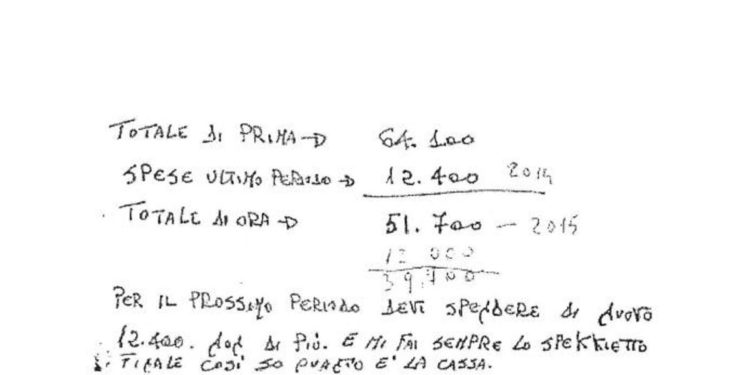 TOTALE DI PRIMA → 64.100
SPESE ULTIMO PERIODO → 12.400 2014
TOTALE DI ORA → 51.700 — 2015
12 000
39.700
PER IL PROSSIMO PERIODO DEVI SPENDERE DI NUOVO
12.400. NON DI PIÙ. E MI FAI SEMPRE LO SPEKKIETTO
TIPALE COSÌ SO QUANTO E' LA CASSA.